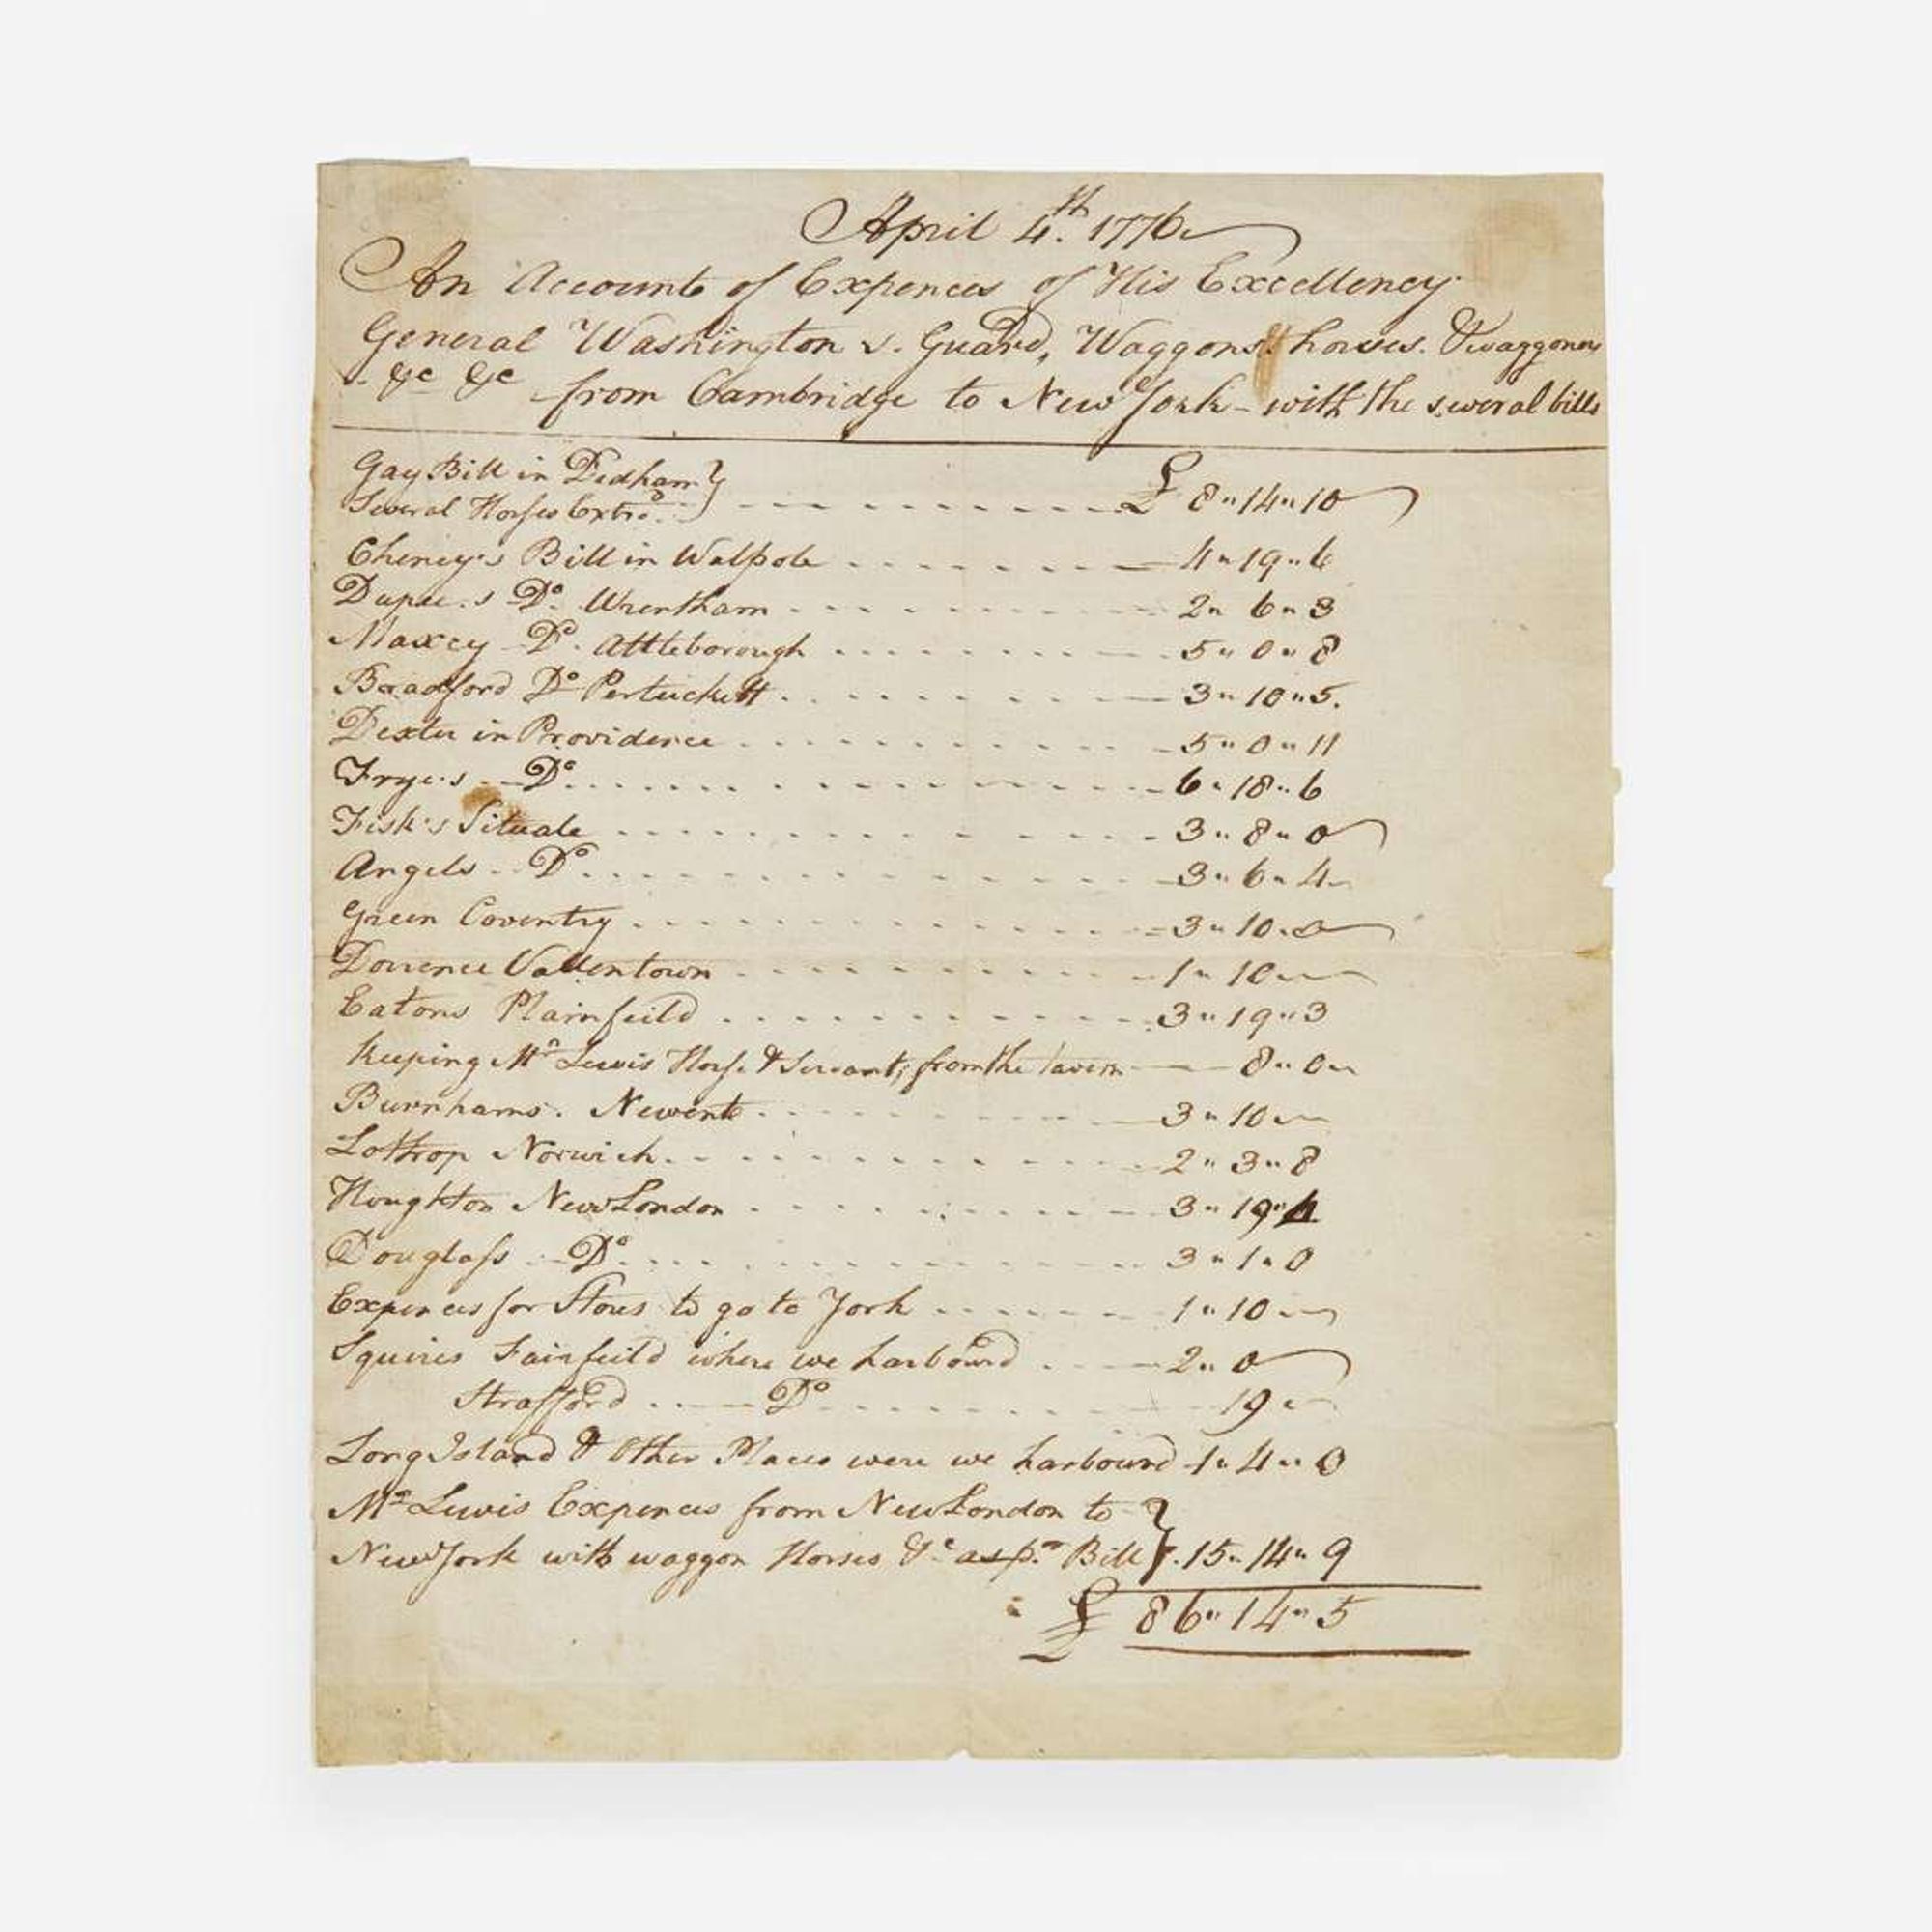 April 4th. 1776
An Accounte of Expences of His Excellency
General Washington s. Guard, Waggons & horses. & waggoners
&c &c from Cambridge to New York - with the several bills
Gay Bill in Dedham }
Several Horses Extrao. } £ 8 " 14 " 10
Cheney's Bill in Walpole 4 " 19 " 6
Do. Wrentham 2 " 6 " 3
Maxcy Do. Attleborough 5 " 0 " 8
Bradford Do Pertuckett 3 " 10 " 5.
Dexter in Providence 5 " 0 " 11
Frye's Do. 6 " 18 " 6
Fisk's Situate 3 " 8 " 0
Angels Do. 3 " 6 " 4
Green Coventry 3 " 10 " 0
Dorrence Vallentown 1 " 10 "
Eatons Plainfeild 3 " 19 " 3
Keeping Mr Lewis Horse & Servant, from the tavern 8 " 0
Burnhams. Newent 3 " 10
Lothrop Norwich 2 " 3 " 8
Houghton New London 3 " 19 " 4
Douglass Do. 3 " 1 " 0
Expences for Stores to go to York 1 " 10
Squires Fairfeild where we harbourd 2 " 0
Strafford Do 19
Long Island & Other Places were we harbourd 1 " 4 " 0
Mr Lewis Expences from New London to }
New York with waggon Horses &c as pr Bill } 15 " 14 " 9
£ 86 " 14 " 5